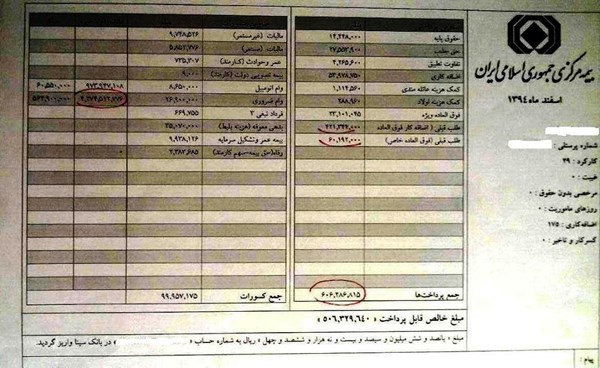 بیمه مرکزی جمهوری اسلامی ایران
اسفند ماه ۱۳۹۴
شماره پرسنلی :
کارکرد : ۲۹
غیبت : ۰
مرخصی بدون حقوق : ۰
روزهای ماموریت : ۰
اضافه‌کاری : ۱۷۵
کسر کار و تاخیر : ۰
حقوق پایه ۱۴,۲۲۸,۰۰۰
حق جلب ۲۷,۵۵۳,۹۰۰
تفاوت تطبیق ۴,۲۶۵,۶۰۰
اضافه کاری ۵۳,۹۷۸,۷۵۰
کمک هزینه عائله مندی ۱,۱۱۴,۵۶۰
کمک هزینه اولاد ۲۸۸,۹۶۰
فوق العاده ویژه ۲۳,۱۰۱,۰۴۵
طلب قبلی ( اضافه کار فوق العاده ۴۲۱,۳۴۴,۰۰۰
طلب قبلی (فوق العاده خاص) ۶۰,۱۹۲,۰۰۰
جمع پرداخت‌ها ۶۰۶,۲۸۶,۸۱۵
مالیات (غیرمستمر) ۹,۷۴۸,۵۲۶
مالیات: (مستمر) ۵,۸۵۲,۲۷۶
عمر وحوادث (کارمند) ۷۳۵,۳۰۷
بیمه عمرویی دولت (کارمند) ۹,۰۰۰
وام اتومبیل ۸,۶۵۰,۰۰۰ ۹۷۳,۹۴۷,۱۰۸ ۶۰,۵۵۰,۰۰۰
وام ضروری ۲۶,۹۰۰,۰۰۰ ۴,۳۷۴,۵۱۲,۷۷۶ ۵۶۴,۹۰۱,۰۰۰
قرداد تبغی ۳ ۶۶۹,۷۵۵
بدهی معوقه (هزینه بلیط) ۳۵,۰۷۰,۰۰۰
بیمه عمر وتشکیل سرمایه ۹,۹۳۸,۱۲۶
وفا(حق بیمه-سهم کارمند) ۲,۳۸۳,۶۸۵
جمع کسورات ۹۹,۹۵۷,۱۷۵
مبلغ خالص قابل پرداخت : ۵۰۶,۳۲۹,۶۴۰
مبلغ « پانصد و شش میلیون و سیصد و بیست و نه هزار و ششصد و چهل » ریال به شماره حساب » در بانک سینا واریز گردید.
پیام :